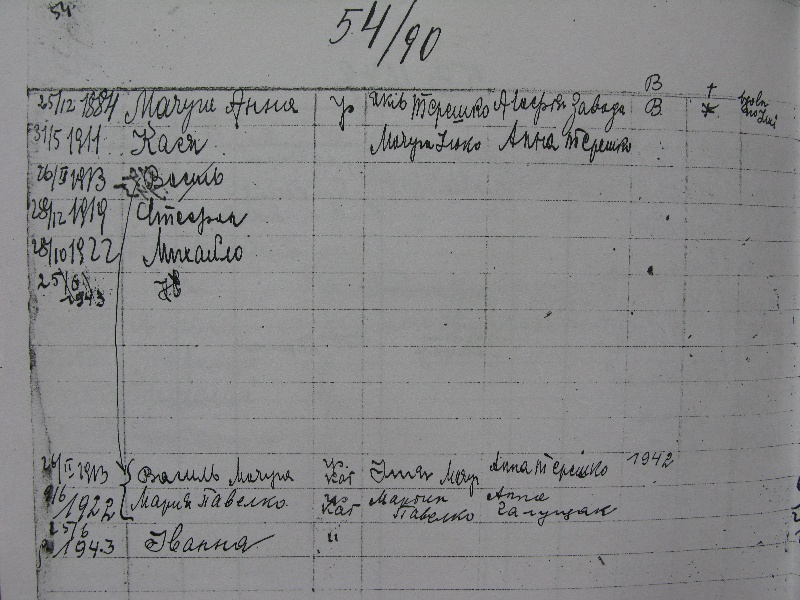 54
54/90
В †
25/12 1884 Мачуга Анна гр Яків Терешко Завада В
31/5 1911 Кася Мачуга Анна Терешко
26/II 1913 Василь
28/12 1919 Стефан
28/10 1922 Михайло
25/6 1943
26/II 1913 Василь Мачуга гр. кат Анна Терешко 1942
1922 Мария Павелко гр кат Мартин Павелко Анна Галущак
25/6 1943 Іванна "